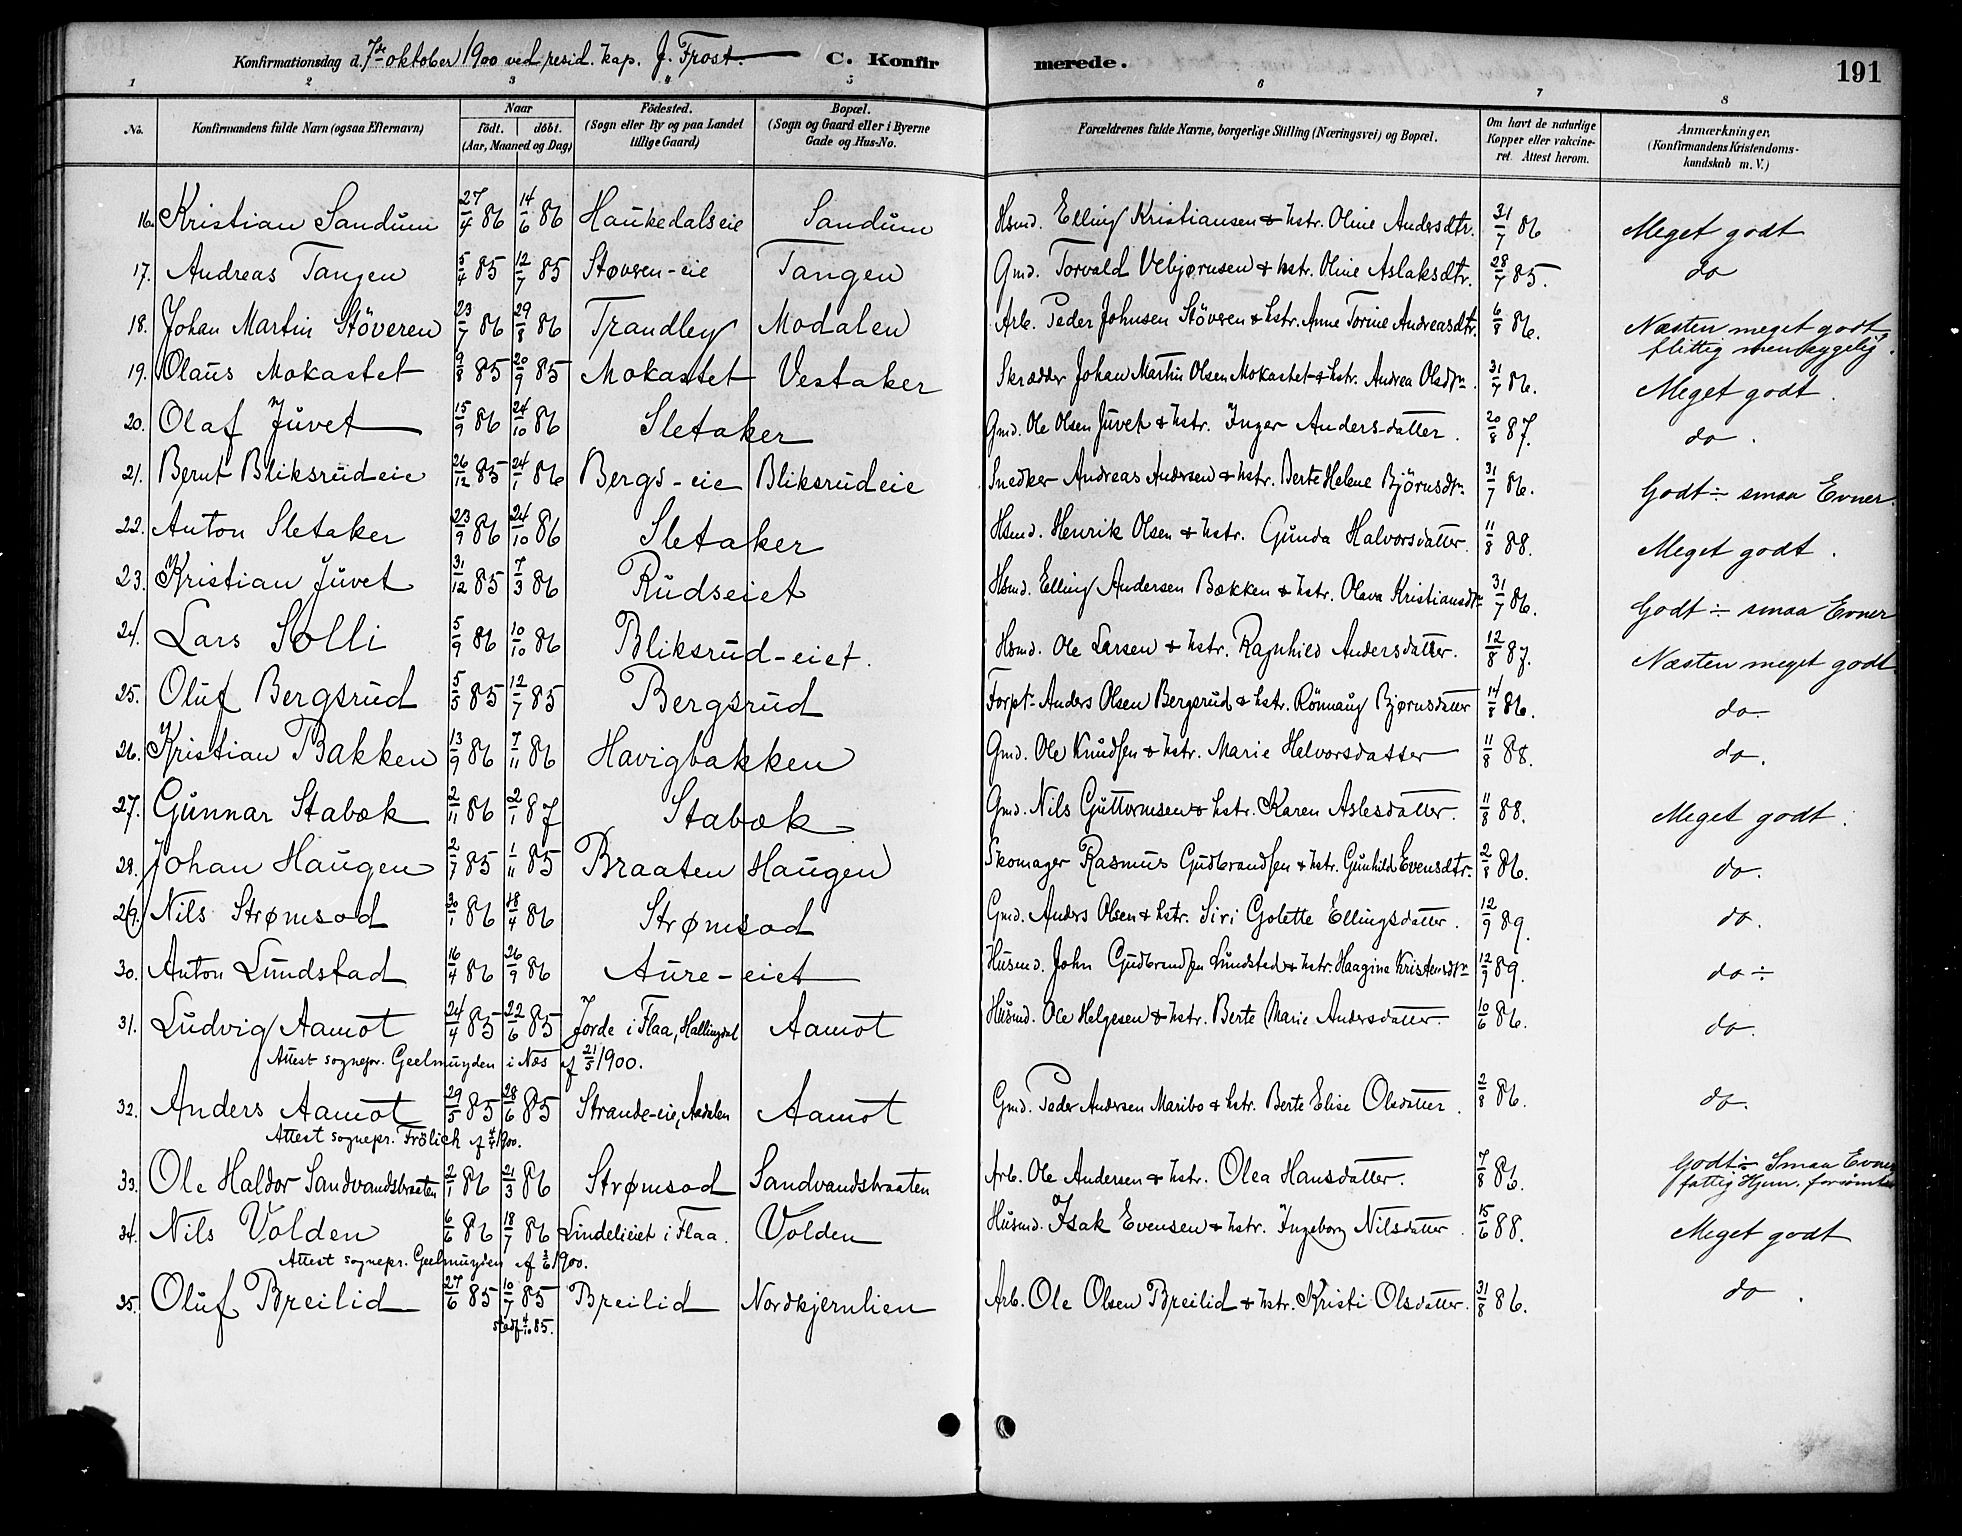 Konfirmationsdag d. 7de oktober 1900 ved resid. kap. J. Frost. C. Konfirmerede. 191
1 2 3 4 5 6 7 8
No. | Konfirmandens fulde Navn (ogsaa Efternavn) | Naar født. | døbt. (Aar, Maaned og Dag) | Fødested. (Sogn eller By og paa Landet tillige Gaard) | Bopæl. (Sogn og Gaard eller i Byerne Gade og Hus-No. | Forældrenes fulde Navne, borgerlige Stilling (Næringsvei) og Bopæl. | Om havt de naturlige Kopper eller vakcineret. Attest herom. | Anmærkninger. (Konfirmandens Kristendomskundskab m. V.)
16. Kristian Sandum 27/4 86 14/6 86 Haukedalseie Sandum Hsmd. Elling Kristiansen & hstr. Oline Andersdtr. 31/7 86 Meget godt
17. Andreas Tangen 5/4 85 12/7 85 Støvren-eie Tangen Gmd. Torvald Vebjørnsen & hstr. Oline Aslaksdtr. 28/7 85. do
18. Johan Martin Støveren 23/7 86 29/8 86 Trandley Modalen Arb. Peder Johnsen Støvren & hstr. Anne Torine Andreasdtr. 6/8 86. Næsten meget godt
flittig men sygelig.
19. Olaus Mokastet 9/8 85 20/9 85 Mokastet Vestaker Skrædder Johan Martin Olsen Mokastet & hstr. Andrea Olsdtr. 31/7 86. Meget godt.
20. Olaf Juvet 15/9 86 24/10 86 Sletaker Gmd. Ole Olsen Juvet & hstr. Inger Anders-datter. 20/8 87. do.
21. Bernt Bliksrudeie 26/12 85 24/1 86 Bergs-eie Bliksrudeie Snedker Andreas Andersen & hstr. Berte Helene Bjørnsdtr. 31/7 86. Godt ÷ smaa Evner.
22. Anton Sletaker 23/9 86 24/10 86 Sletaker Hsmd. Henrik Olsen & hstr. Gunda Halvorsdatter. 11/8 88. Meget godt.
23. Kristian Juvet 31/12 85 7/3 86 Rudseiet Hsmd. Elling Andersen Bækken & hstr. Olava Kristiansdtr. 31/7 86. Godt ÷ smaa Evner
24. Lars Solli 5/9 86 10/10 86 Bliksrud-eiet. Hsmd. Ole Larsen & hstr. Ragnhild Andersdatter. 12/8 87. Næsten meget godt.
25. Oluf Bergsrud 5/5 85 12/7 85 Bergsrud Forpt. Anders Olsen Bergsrud & hstr. Rönnaug Bjørnsdatter 14/8 86. do.
26. Kristian Bakken 13/9 86 7/11 86 Havigbakken Gmd. Ole Knudsen & hstr. Marie Halvorsdatter 11/8 88. do.
27. Gunnar Stabæk 2/11 86 2/1 87 Stabæk Gmd. Nils Guttormsen & hstr. Karen Aslesdatter. 11/8 88. Meget godt.
28. Johan Haugen 2/7 85 1/11 85 Braaten Haugen Skomager Rasmus Gudbrandsen & hstr. Gunhild Evensdtr. 2/8 86. do.
29. Nils Strømsod 30/1 86 18/4 86 Strømsod Gmd. Anders Olsen & hstr. Siri Golette Ellingsdatter. 12/9 89. do.
30. Anton Lundstad 16/4 86 26/9 86 Aure-eiet Husmd. John Gudbrandsen Lundstad & hstr. Haagine Kristensdtr. 12/9 89. do ÷
31. Ludvig Aamot 24/4 85 22/6 85 Jorde i Flaa, Hallingdal Aamot Husmd. Ole Helgesen & hstr. Berte Marie Andersdatter. 10/6 86. do.
Attest sognepr. Geelmuyden i Næs af 21/5 1900.
32. Anders Aamot 29/5 85 28/6 85 Strande-eie, Aadalen Aamot Gmd. Peder Andersen Maribo & hstr. Berte Elise Olsdatter. 2/8 86. do.
Attest sognepr. Frölich af 1900.
33. Ole Haldor Sandvandsbraaten 2/1 86 21/3 86 Strømsod Sandvandsbraaten Arb. Ole Andersen & hstr. Olea Hansdatter. 7/8 86. Godt ÷ Smaa Evner
fattig Hjem.
34. Nils Volden 6/6 86 18/7 86 Lindelieiet i Flaa. Volden Husmd. Isak Evensen & hstr. Ingeborg Nilsdatter. 15/6 88. Meget godt
Attest sognepr. Geelmuyden af 1900.
35. Oluf Breilid 27/6 85 10/7 85 Breilid Nordkjernlien Arb. Ole Olsen Breilid & hstr. Kristi Olsdatter. 31/8 86. do.
stadf. 4/10 85.